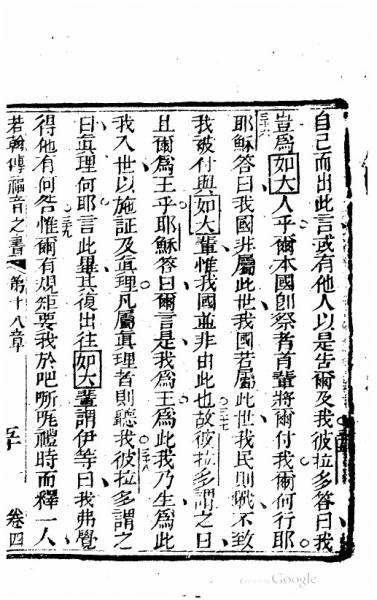 自己而出此言或有他人以是告爾及我彼拉多答曰我
三五
豈為如大人乎爾本國創祭者首輩將爾付我爾何行耶
三六
耶穌答曰我國非屬此世我國若屬此世我民則戰不致
我被付與如大輩惟我國並非由此也故彼拉多謂之曰
三七
且爾為王乎耶穌答曰爾言是我為王為此我乃生為此
我入世以施証及真理凡屬真理者則聽我彼拉多謂之
三八
曰真理何耶言此畢其復出往如大輩謂伊等曰我弗覺
得他有何咎惟爾有規矩要我於吧𠵽呱禮時而釋一人
三九
若翰傳福音之書 第十八章 卷四
Google